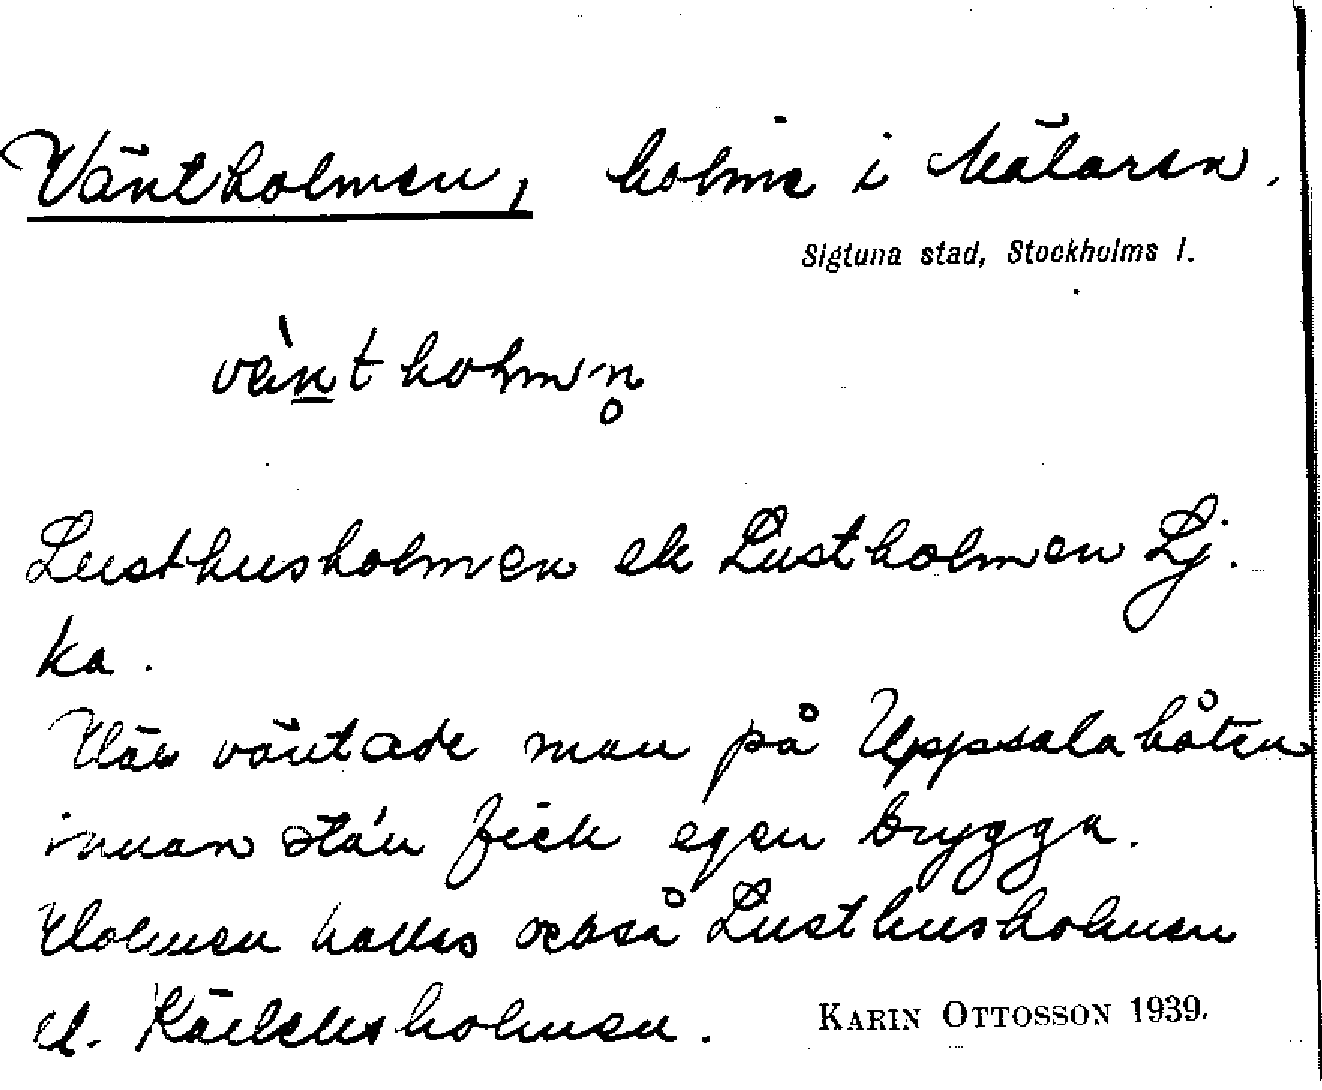 Väntholmen, holme i Mälaren.
Sigtuna stad, Stockholms l.
vä̀ntholmn̥
Lusthusholmen ek Lustholmen Lj.
ka.
Här väntade man på Uppsalabåten
innan stán fick egen brygga.
Holmen kallas också Lusthusholmen
el. Kärleksholmen.
KARIN OTTOSSON 1939.